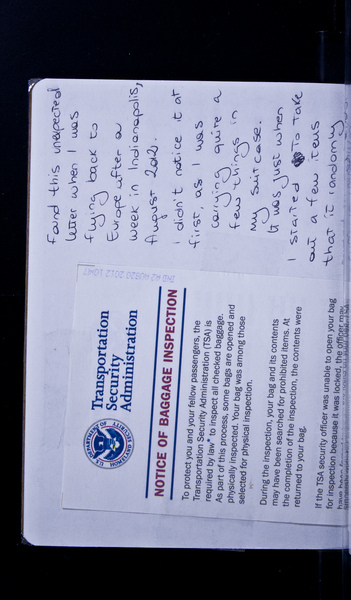 found this unexpected
letter when I was
flying back to
Europe after a
week in Indianapolis,
August 2012.
I didn't notice it at
first as I was
carying quite a
few things in
my suitcase.
It was just when
I started to take
out a few items
that it randomly
Transportation
Security
Administration
NOTICE OF BAGGAGE INSPECTION
To protect you and your fellow passengers, the
Transportation Security Administration (TSA) is
required by law* to inspect all checked baggage.
As part of this process, some bags are opened and
physically inspected. Your bag was among those
selected for physical inspection.
During the inspection, your bag and its contents
may have been searched for prohibited items. At
the completion of the inspection, the contents were
returned to your bag.
If the TSA security officer was unable to open your bag
for inspection because it was locked, the officer may